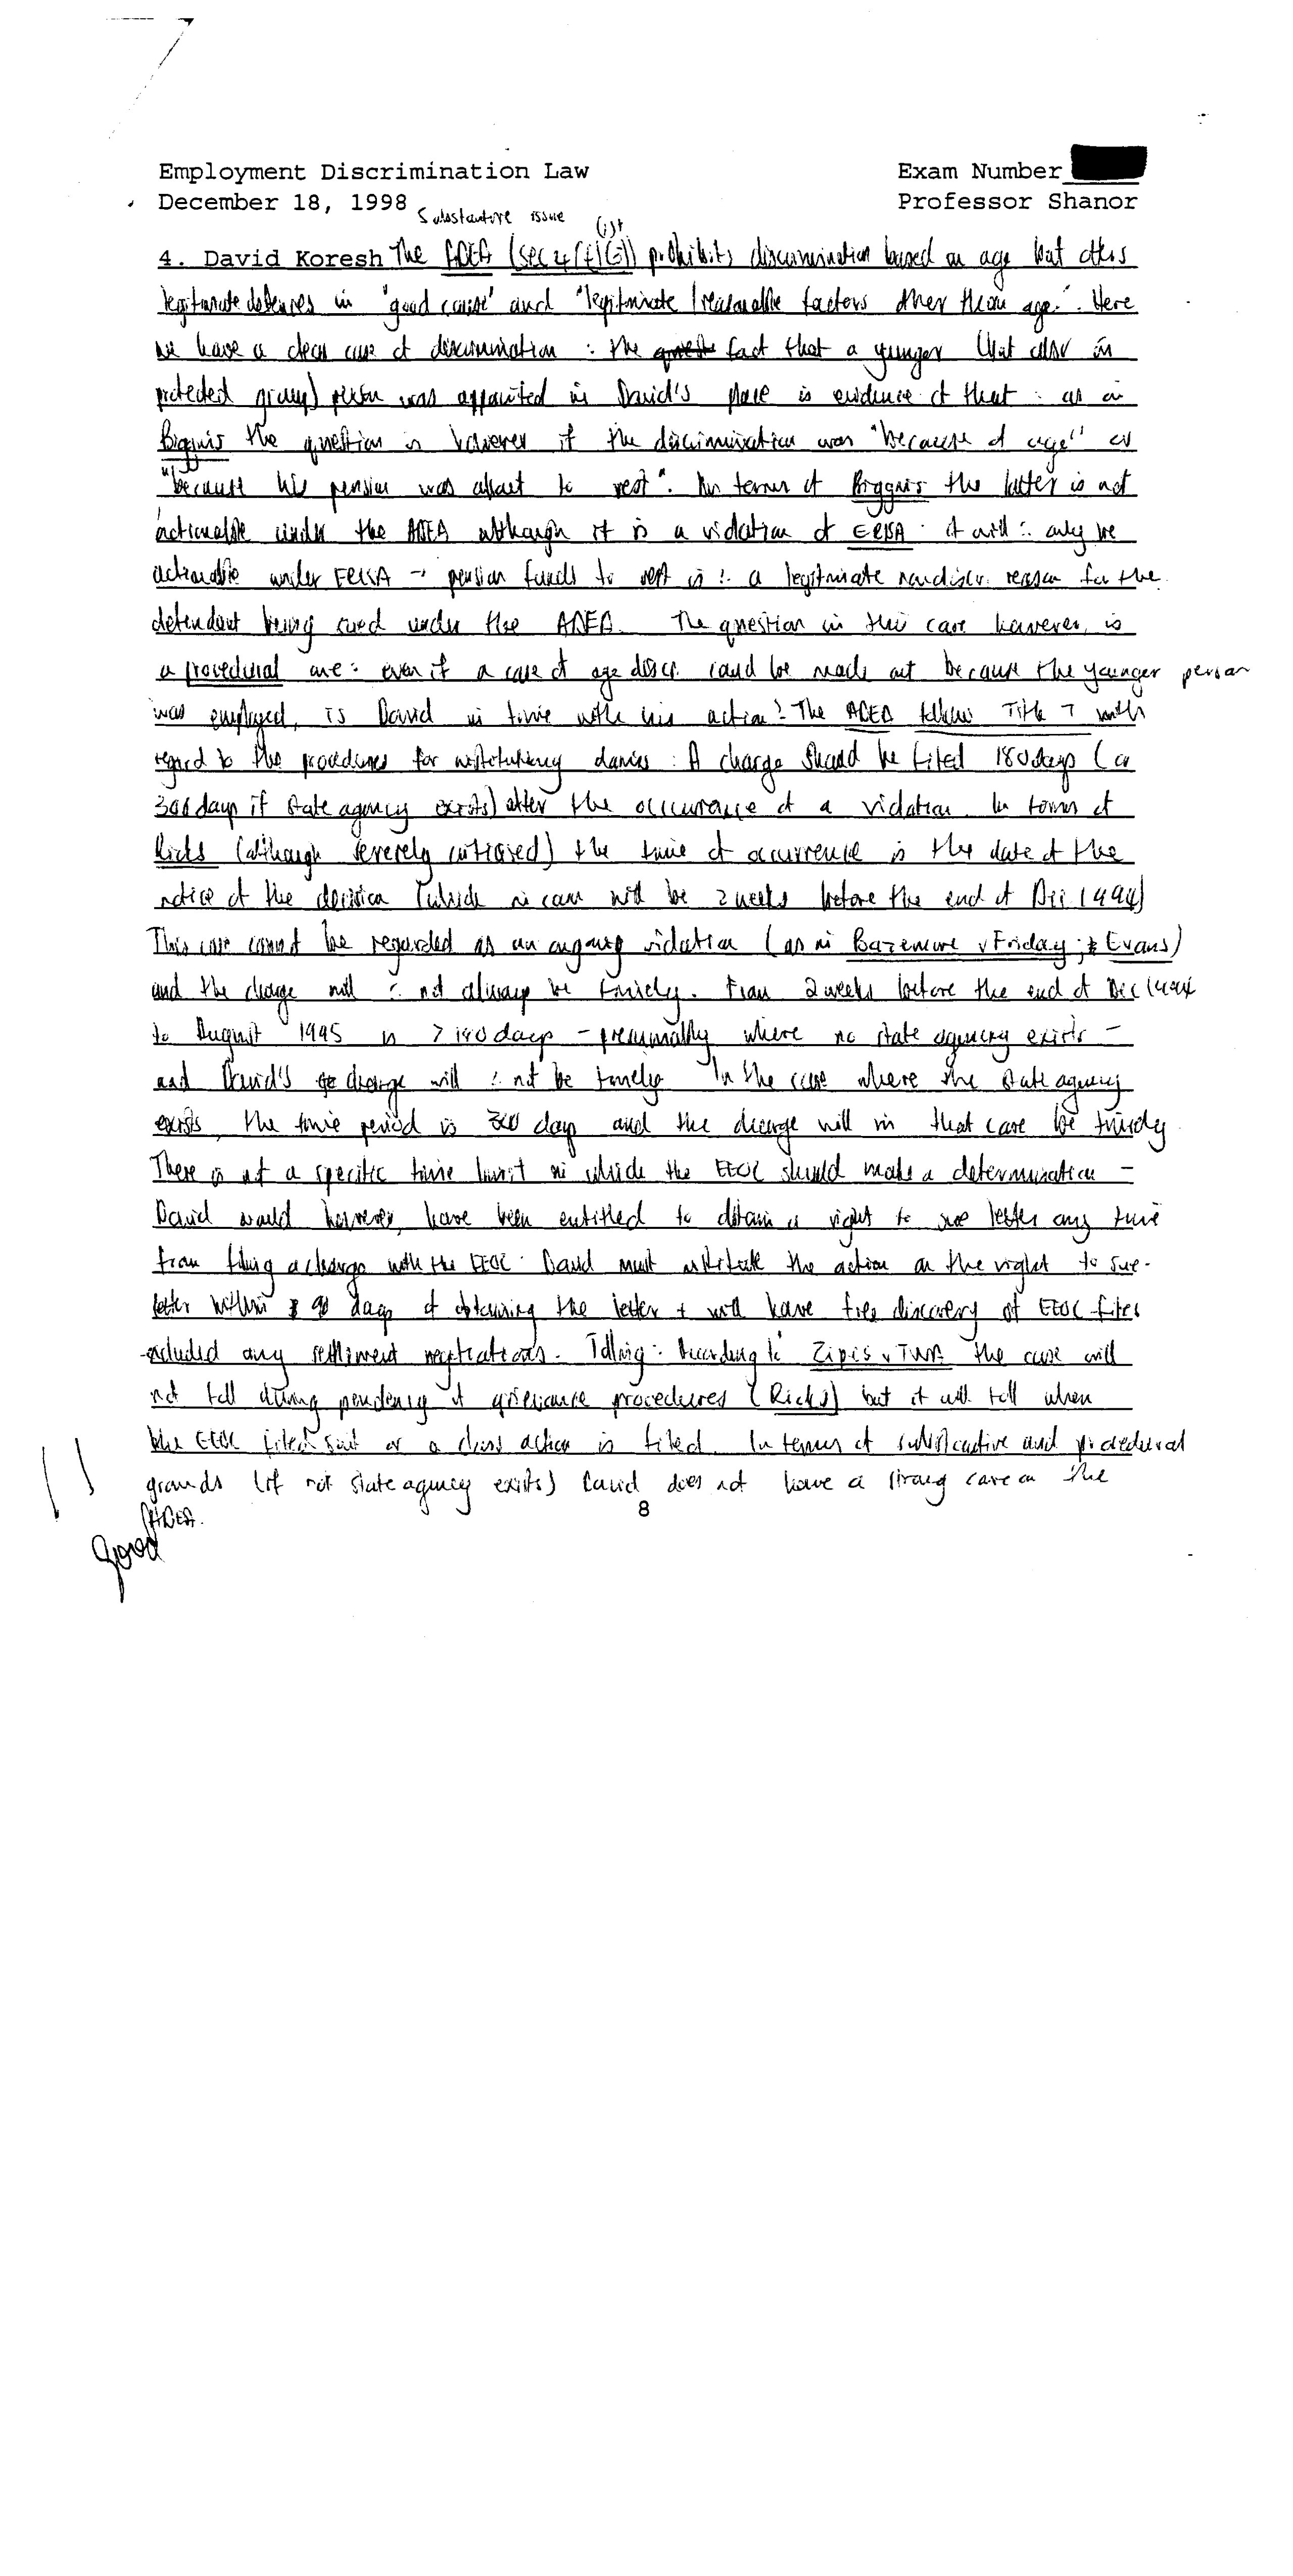 Employment Discrimination Law Exam Number
December 18, 1998 Professor Shanor
Substantive issue
4. David Koresh The ADEA (sec 4(f)(i)+(3)) prohibits discrimination based on age but offers
legitimate defenses in "good cause" and "legitimate / reasonable factors other than age." Here
we have a clear case of discrimination : the fact that a younger (but also in
protected group) person was appointed in David's place is evidence of that : as in
Biggins the question is however if the discrimination was "because of age" or
"because his pension was about to vest". In terms of Biggins the latter is not
actionable under the ADEA although it is a violation of ERISA . it will ∴ only be
actionable under ERISA → pension funds to vest is ∴ a legitimate nondiscr. reason for the
defendant being sued under the ADEA. The question in this case however, is
a procedural one : even if a case of age discr. could be made out because the younger person
was employed, is David in time with his action? The ADEA follows Title 7 with
regard to the procedures for instituting claims : A charge should be filed 180 days (or
300 days if state agency exists) after the occurance of a violation. In terms of
Ricks (although severely criticised) the time of occurrence is the date of the
notice of the decision (which in casu will be 2 weeks before the end of Dec 1994)
This case cannot be regarded as an ongoing violation (as in Bazemore v Friday ; Evans)
and the charge will ∴ not always be timely. From 2 weeks before the end of Dec 1994
to August 1995 is > 180 days – presumably where no state agency exists –
and David's charge will ∴ not be timely. In the case where the state agency
exists, the time period is 300 days and the charge will in that case be timely
There is not a specific time limit in which the EEOC should make a determination –
David would however, have been entitled to obtain a right to sue letter any time
from filing a charge with the EEOC. David must institute the action on the right to sue-
letter within 90 days of obtaining the letter + will have free discovery of EEOC files
-included any settlement negotiations. Tolling : According to Zipes v TWA the case will
not toll during pendency of grievance procedures (Ricks) but it will toll when
the EEOC filed suit or a class action is filed. In terms of substantive and procedural
grounds (if not state agency exists) David does not have a strong case on the
ADEA.
8
Good